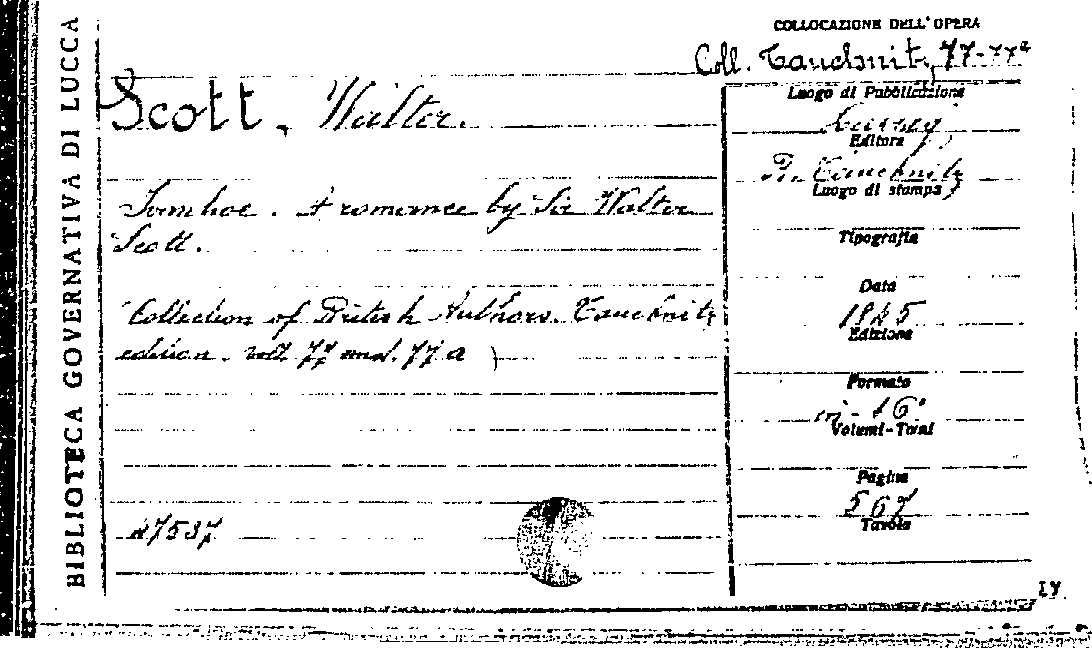 BIBLIOTECA GOVERNATIVA DI LUCCA
COLLOCAZIONE DELL'OPERA
Coll. Tauchnitz, 77-77a
Scott, Walter.
Ivanhoe. A romance by Sir Walter
Scott.
Collection of British Authors. Tauchnitz
edition. voll. 77 and. 77 a )
47537
Luogo di Pubblicazione
Leipzig
Editore
B. Tauchnitz
Luogo di stampa
Tipografia
Data
1845
Edizione
Formato
in-16°
Volumi-Tomi
Pagine
567
Tavole